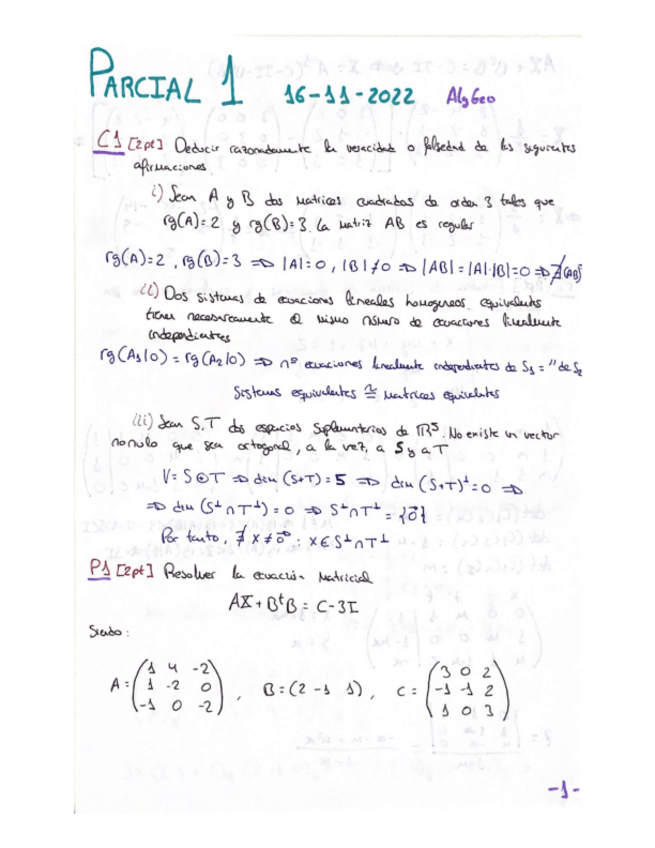 PARCIAL 1 16-11-2022 AlgGeo
C1 [2pt] Deducir razonadamente la veracidad o falsedad de las siguientes
afirmaciones
i) Sean A y B dos matrices cuadradas de orden 3 tales que
rg(A)=2 y rg(B)=3. La matriz AB es regular
rg(A)=2, rg(B)=3 ⇒ |A|=0, |B|≠0 ⇒ |AB|=|A|·|B|=0 ⇒ ∄
ii) Dos sistemas de ecuaciones lineales homogeneos equivalentes
tienen necesariamente el mismo número de ecuaciones linealmente
independientes
rg(A₁|0) = rg(A₂|0) ⇒ nº ecuaciones linealmente independientes de S₁ = " de S₂
Sistemas equivalentes ≅ matrices equivalentes
iii) Sean S,T dos espacios suplementarios de ℝ⁵. No existe un vector
no nulo que sea ortogonal, a la vez, a S y a T
V = S⊕T ⇒ dim (S+T)=5 ⇒ dim (S+T)^⊥=0 ⇒
⇒ dim (S^⊥∩T^⊥) = 0 ⇒ S^⊥∩T^⊥ = {0⃗}
Por tanto, ∄ x≠0⃗ : x∈S^⊥∩T^⊥
P1 [2pt] Resolver la ecuación matricial
AX + BᵗB = C-3I
Siendo:
A = (1 4 -2
1 -2 0
-1 0 -2), B = (2 -1 1), C = (3 0 2
-1 -1 2
1 0 3)
-1-